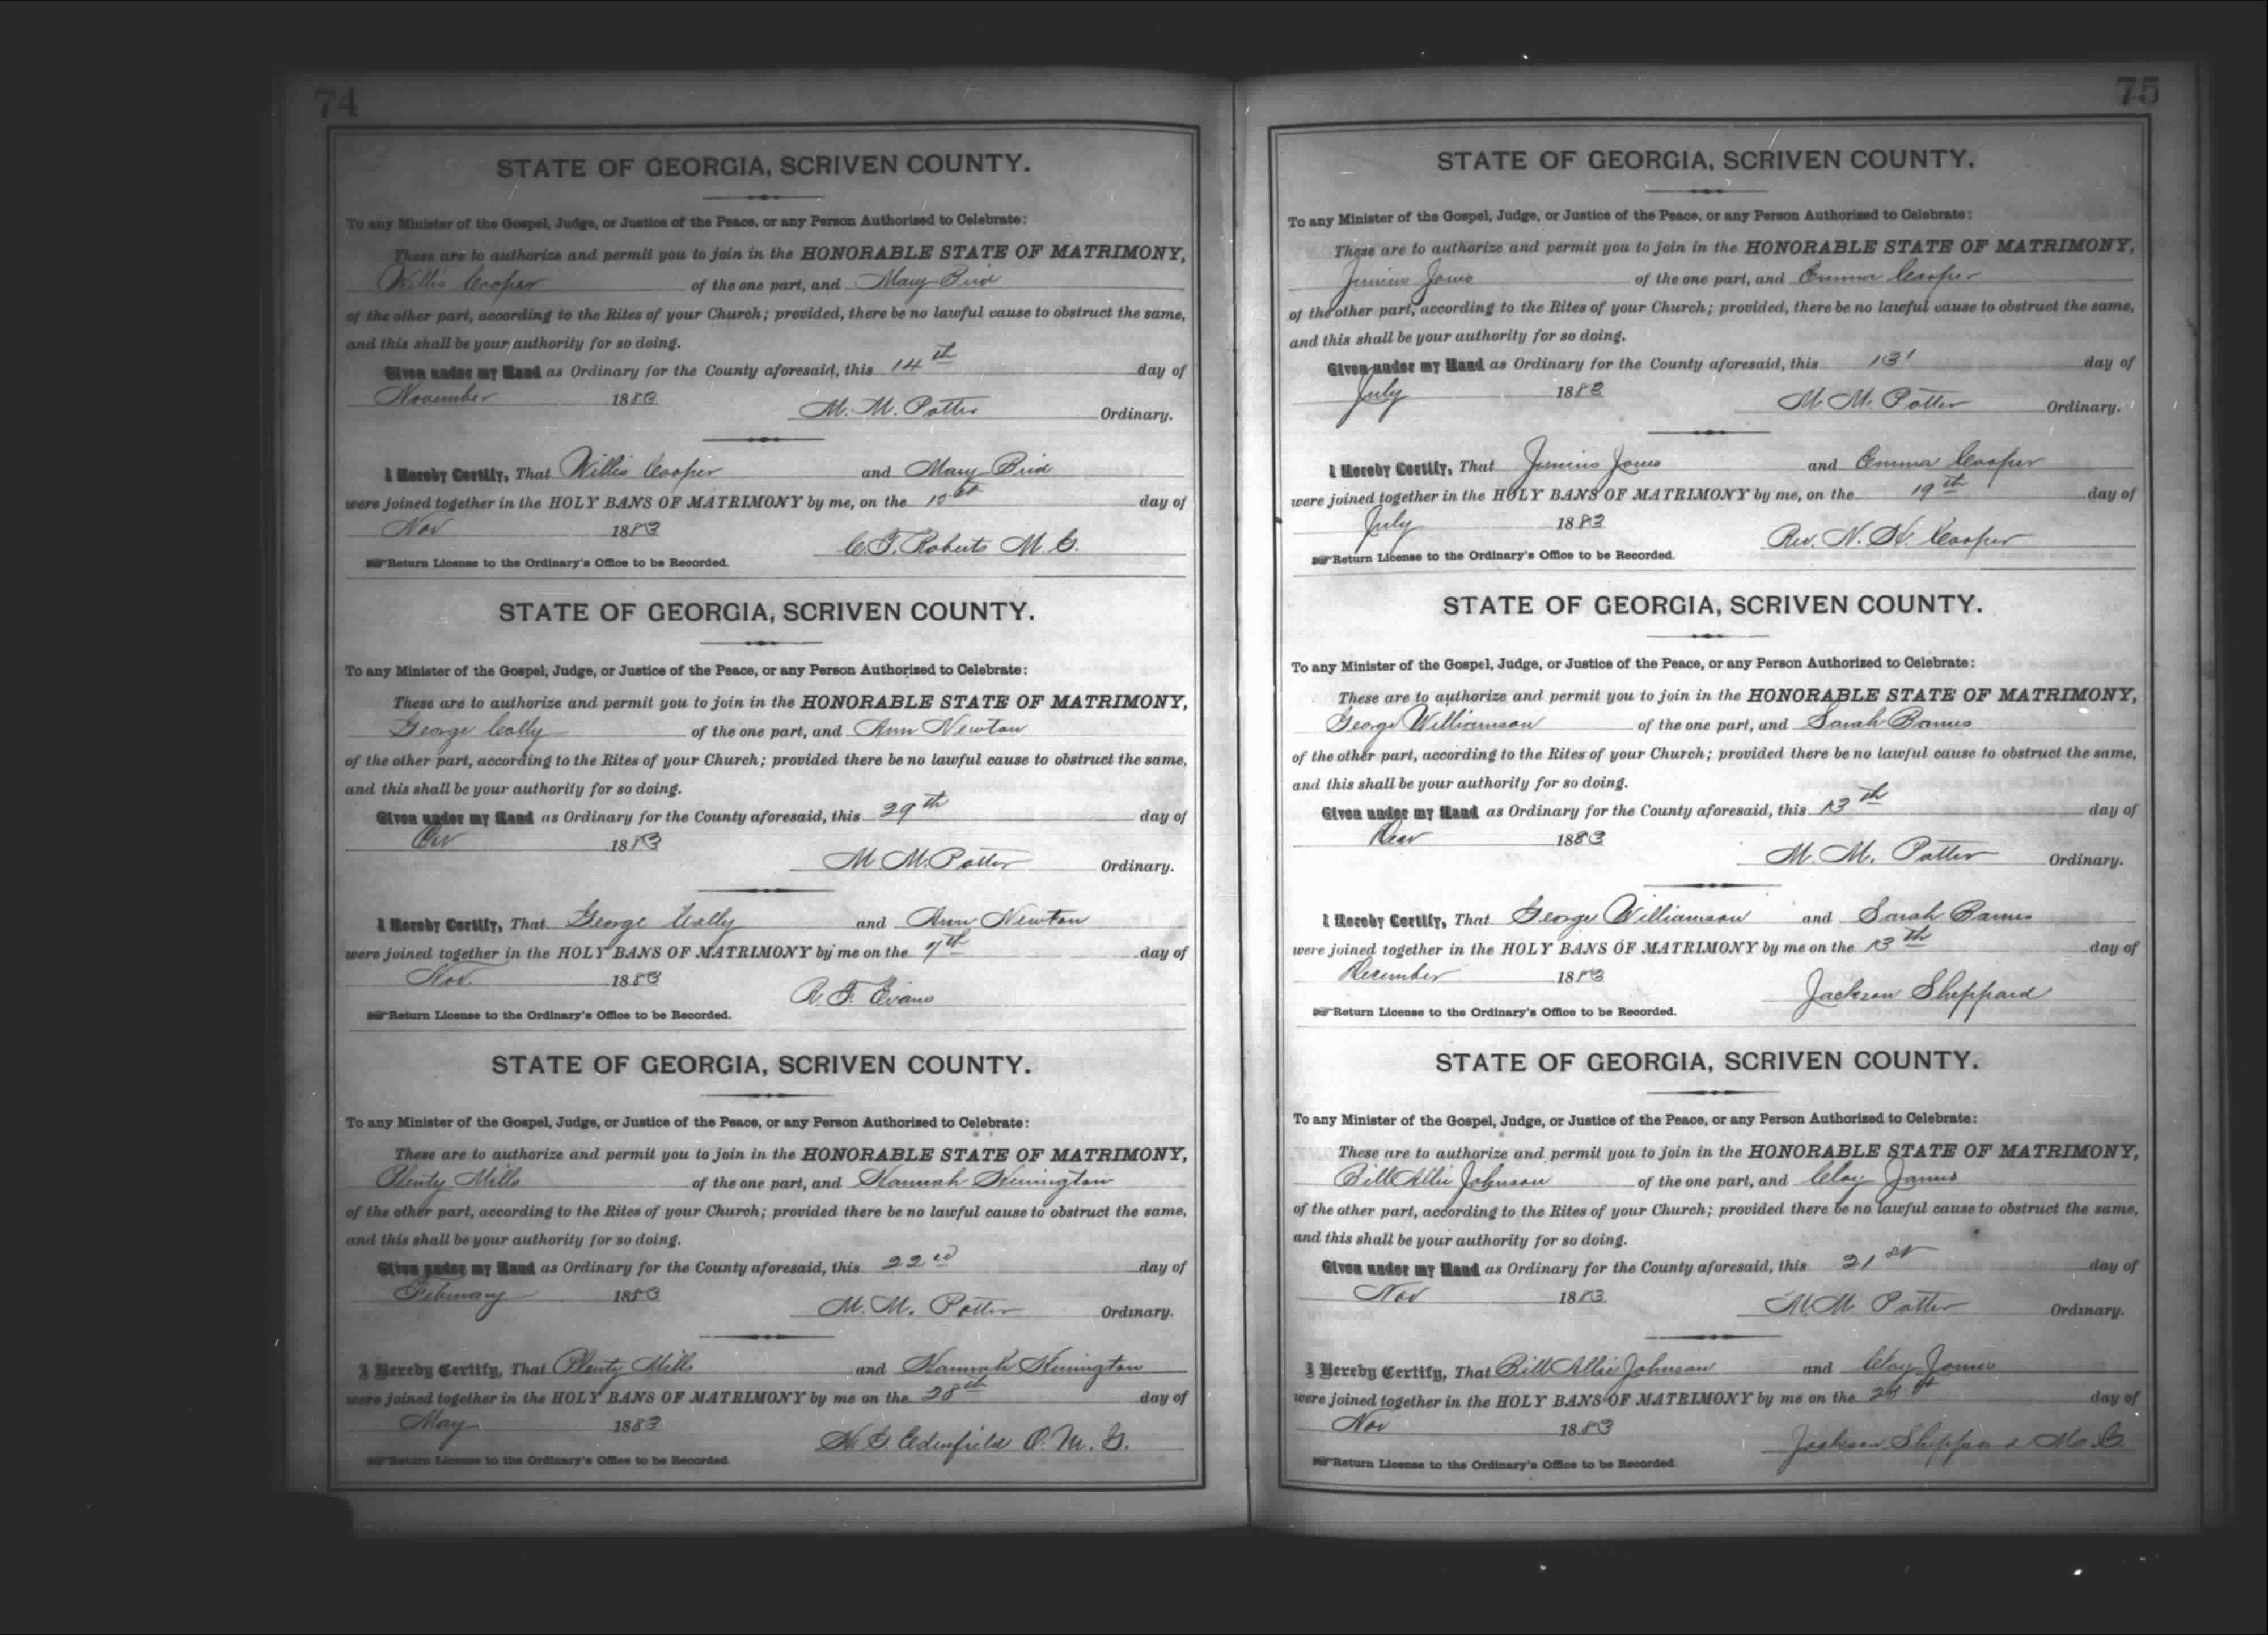 74
STATE OF GEORGIA, SCRIVEN COUNTY.
To any Minister of the Gospel, Judge, or Justice of the Peace, or any Person Authorized to Celebrate:
These are to authorize and permit you to join in the HONORABLE STATE OF MATRIMONY,
Willis Cooper of the one part, and Mary Bird
of the other part, according to the Rites of your Church; provided, there be no lawful cause to obstruct the same,
and this shall be your authority for so doing.
Given under my Hand as Ordinary for the County aforesaid, this 14th day of
November 1883 M. M. Potter Ordinary.
I Hereby Certify, That Willis Cooper and Mary Bird
were joined together in the HOLY BANS OF MATRIMONY by me, on the day of
Nov 1883 C. F. Roberts M. G.
Return License to the Ordinary's Office to be Recorded.
STATE OF GEORGIA, SCRIVEN COUNTY.
To any Minister of the Gospel, Judge, or Justice of the Peace, or any Person Authorized to Celebrate:
These are to authorize and permit you to join in the HONORABLE STATE OF MATRIMONY,
George Cally of the one part, and Ann Newton
of the other part, according to the Rites of your Church; provided there be no lawful cause to obstruct the same,
and this shall be your authority for so doing.
Given under my Hand as Ordinary for the County aforesaid, this 29th day of
1883 M. M. Potter Ordinary.
I Hereby Certify, That George Cally and Ann Newton
were joined together in the HOLY BANS OF MATRIMONY by me on the 7th day of
Nov. 1883 R. F. Evans
Return License to the Ordinary's Office to be Recorded.
STATE OF GEORGIA, SCRIVEN COUNTY.
To any Minister of the Gospel, Judge, or Justice of the Peace, or any Person Authorized to Celebrate:
These are to authorize and permit you to join in the HONORABLE STATE OF MATRIMONY,
Plenty Mills of the one part, and Hannah
of the other part, according to the Rites of your Church; provided there be no lawful cause to obstruct the same,
and this shall be your authority for so doing.
Given under my Hand as Ordinary for the County aforesaid, this 22nd day of
February 1883 M. M. Potter Ordinary.
I Hereby Certify, That Plenty Mills and Hannah
were joined together in the HOLY BANS OF MATRIMONY by me on the 28th day of
May 1883 H. G. Edenfield O. M. G.
Return License to the Ordinary's Office to be Recorded.
75
STATE OF GEORGIA, SCRIVEN COUNTY.
To any Minister of the Gospel, Judge, or Justice of the Peace, or any Person Authorized to Celebrate:
These are to authorize and permit you to join in the HONORABLE STATE OF MATRIMONY,
Junius Jones of the one part, and Emma Cooper
of the other part, according to the Rites of your Church; provided, there be no lawful cause to obstruct the same,
and this shall be your authority for so doing.
Given under my Hand as Ordinary for the County aforesaid, this 13 day of
July 1883 M. M. Potter Ordinary.
I Hereby Certify, That Junius Jones and Emma Cooper
were joined together in the HOLY BANS OF MATRIMONY by me, on the 19th day of
July 1883 Rev. N. H. Cooper
Return License to the Ordinary's Office to be Recorded.
STATE OF GEORGIA, SCRIVEN COUNTY.
To any Minister of the Gospel, Judge, or Justice of the Peace, or any Person Authorized to Celebrate:
These are to authorize and permit you to join in the HONORABLE STATE OF MATRIMONY,
George Williamson of the one part, and Sarah Barnes
of the other part, according to the Rites of your Church; provided there be no lawful cause to obstruct the same,
and this shall be your authority for so doing.
Given under my Hand as Ordinary for the County aforesaid, this 13th day of
Dec 1883 M. M. Potter Ordinary.
I Hereby Certify, That George Williamson and Sarah Barnes
were joined together in the HOLY BANS OF MATRIMONY by me on the 13th day of
December 1883 Jackson Sheppard
Return License to the Ordinary's Office to be Recorded.
STATE OF GEORGIA, SCRIVEN COUNTY.
To any Minister of the Gospel, Judge, or Justice of the Peace, or any Person Authorized to Celebrate:
These are to authorize and permit you to join in the HONORABLE STATE OF MATRIMONY,
Bill Allie Johnson of the one part, and Clay James
of the other part, according to the Rites of your Church; provided there be no lawful cause to obstruct the same,
and this shall be your authority for so doing.
Given under my Hand as Ordinary for the County aforesaid, this 21st day of
Nov 1883 M. M. Potter Ordinary.
I Hereby Certify, That Bill Allie Johnson and Clay James
were joined together in the HOLY BANS OF MATRIMONY by me on the day of
Nov 1883 Jackson Sheppard M. G.
Return License to the Ordinary's Office to be Recorded.